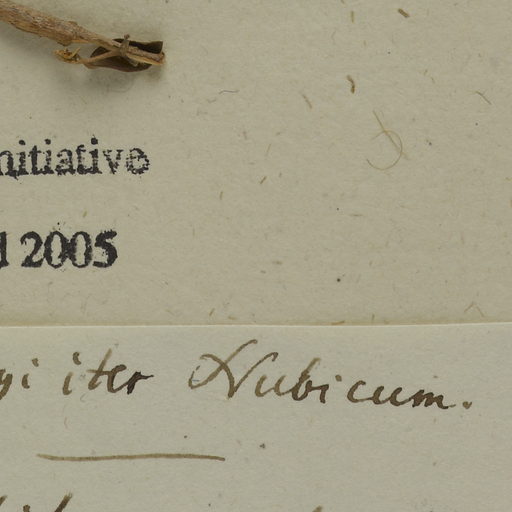 nitiative
d 2005
gi iter Nubicum.